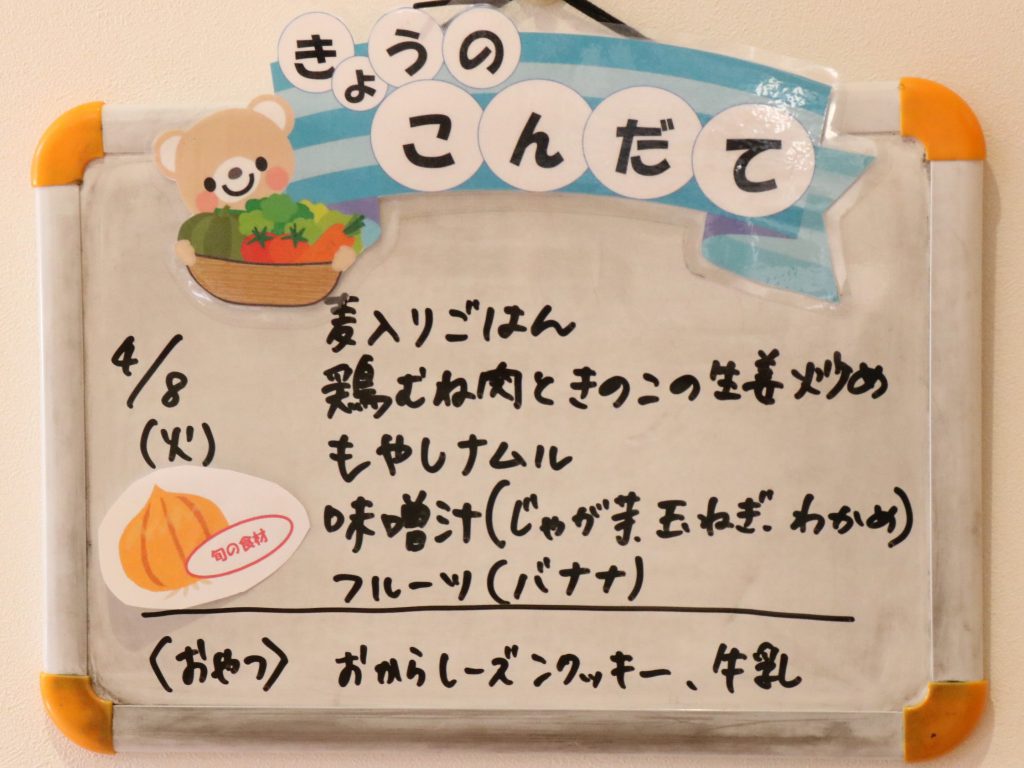 きょうの
こんだて
4/8
(火)
麦入りごはん
鶏むね肉ときのこの生姜炒め
もやしナムル
味噌汁(じゃが芋.玉ねぎ.わかめ)
フルーツ(バナナ)
旬の食材
〈おやつ〉 おからレーズンクッキー、牛乳